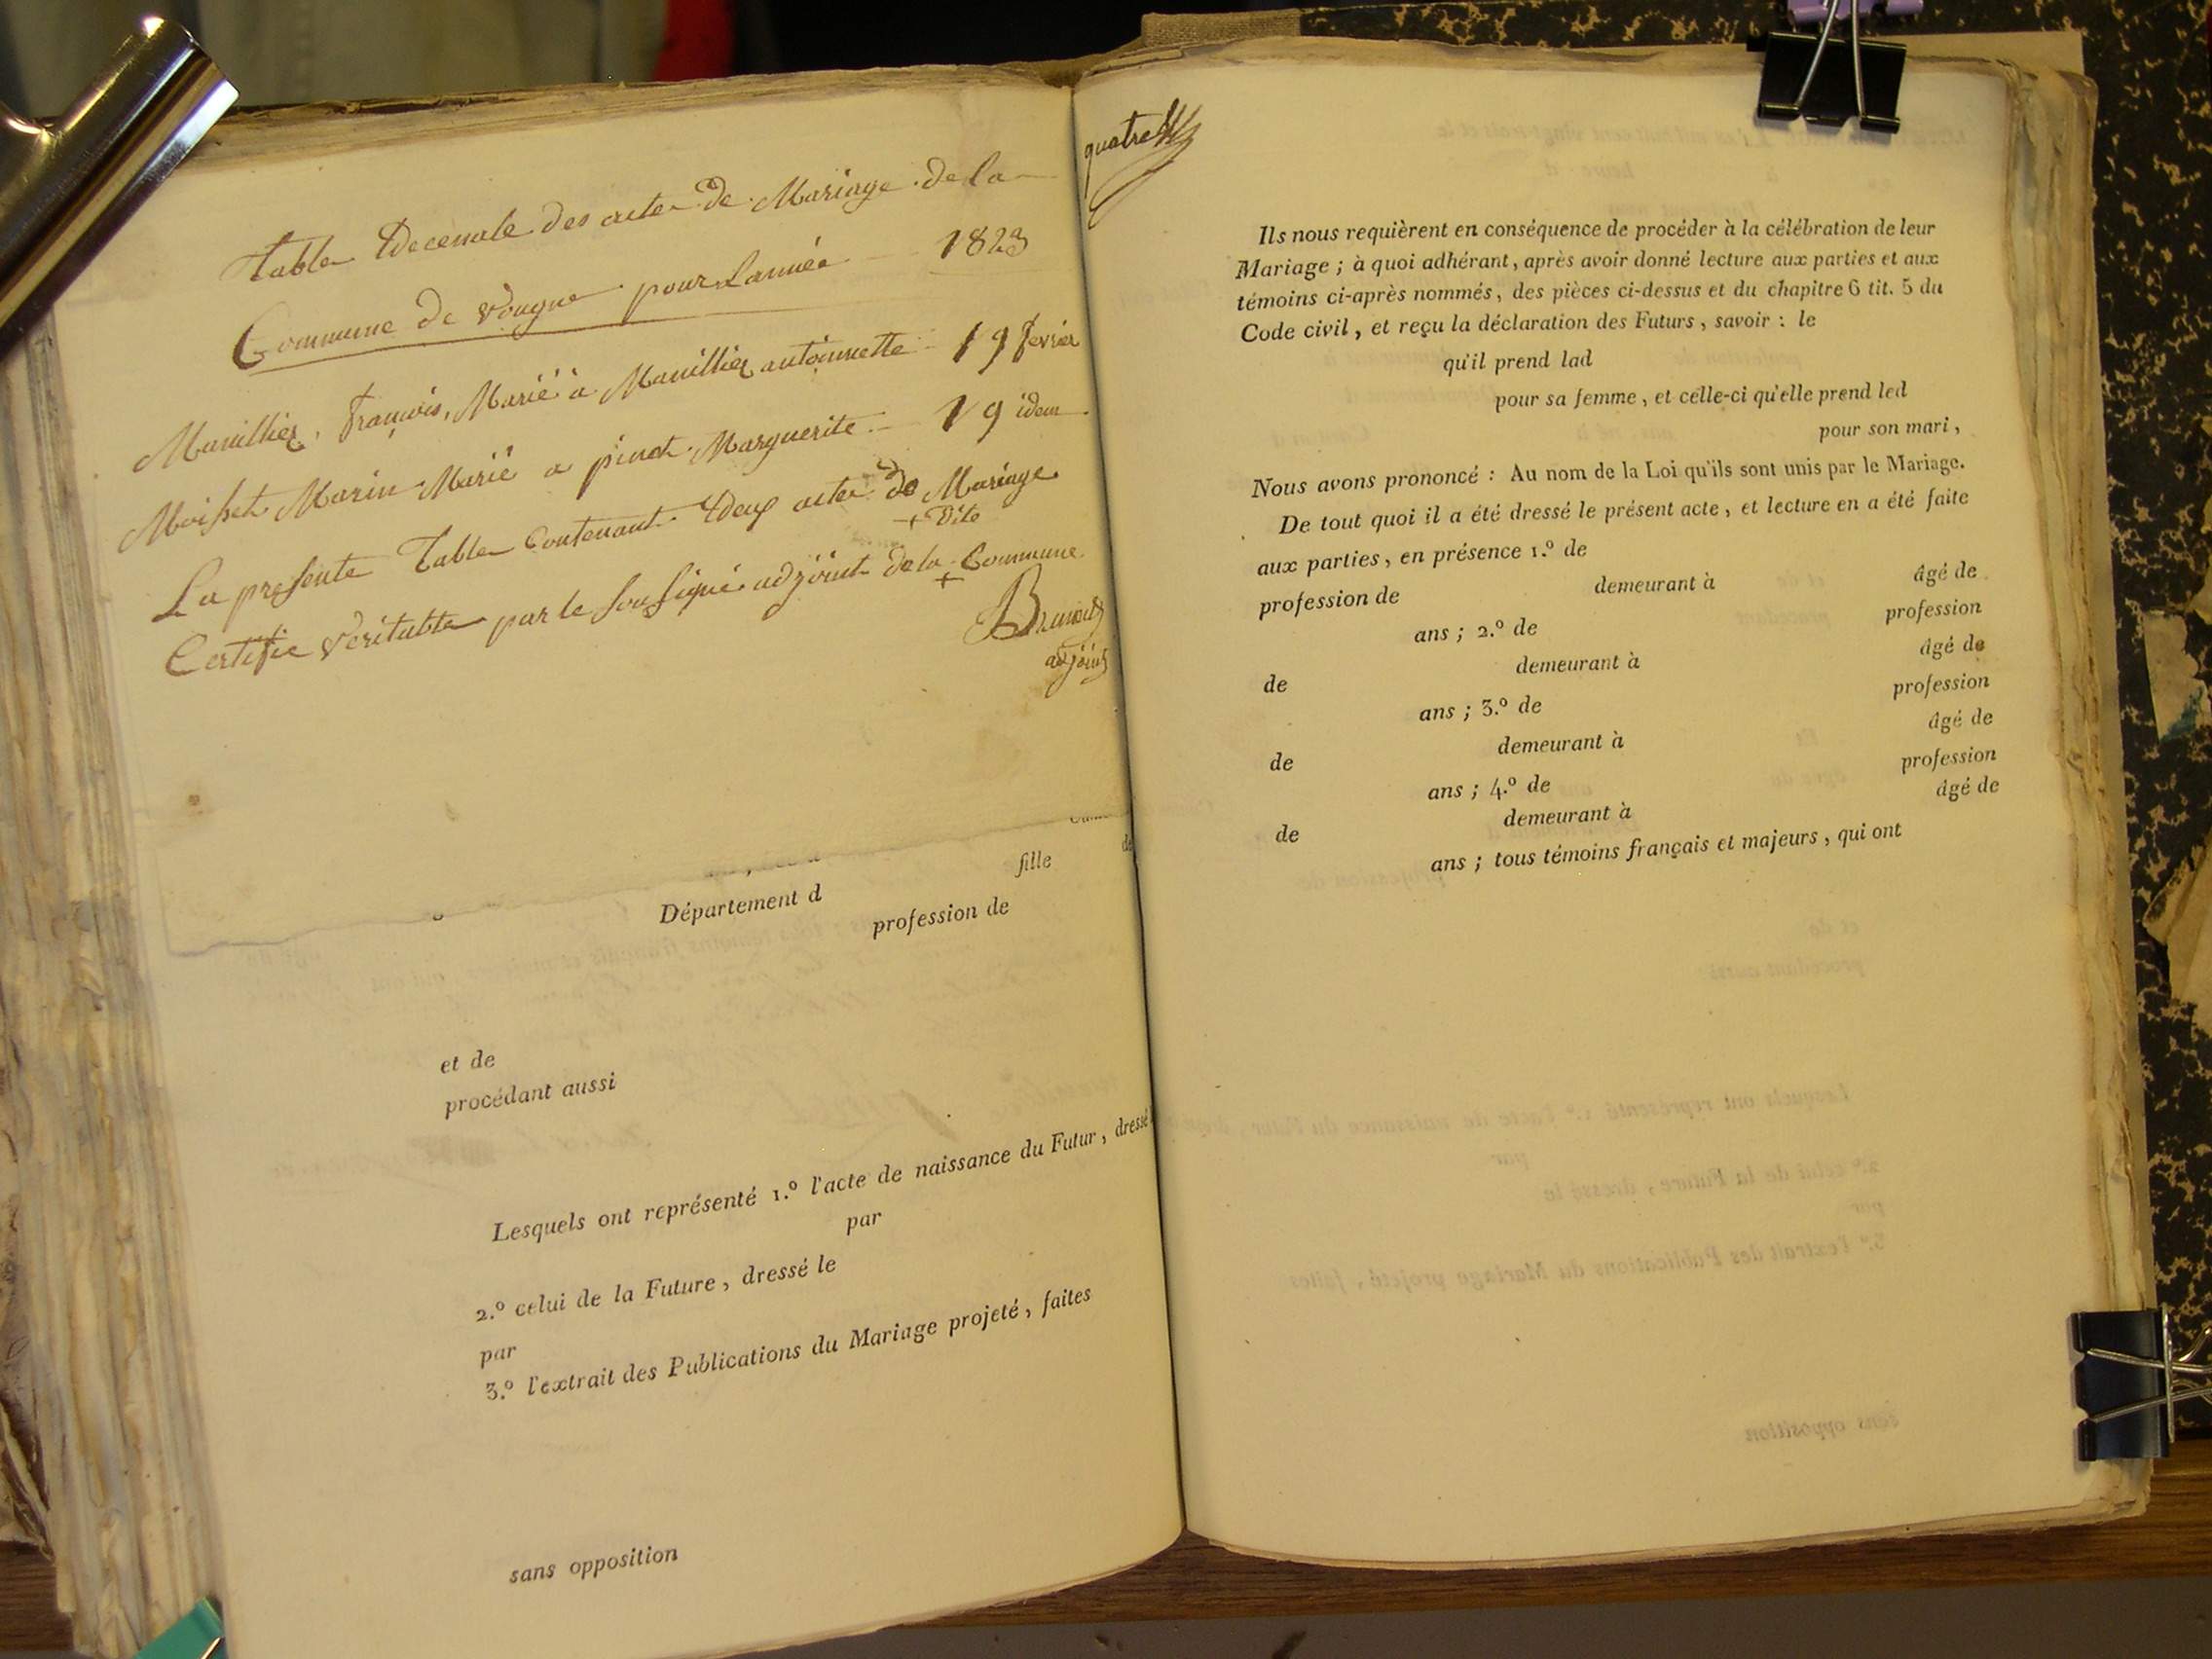 Table Decenale des actes de Mariage de la
Commune de vougne pour L'année 1823
Manillier, françois, Marié à Manillier antoinette 19 fevrier
Moisset Marin Marié a pinet Marguerite 19 idem
La presente Table Contenant Deux actes de Mariage
+ Dite
Certifie veritable par le sousigné adjoint de la + Commune
adjoint
fille
Département d
profession de
et de
procédant aussi
Lesquels ont représenté 1.º l'acte de naissance du Futur, dressé
par
2.º celui de la Future, dressé le
par
3.º l'extrait des Publications du Mariage projeté, faites
sans opposition
quatre
Ils nous requièrent en conséquence de procéder à la célébration de leur
Mariage ; à quoi adhérant, après avoir donné lecture aux parties et aux
témoins ci-après nommés, des pièces ci-dessus et du chapitre 6 tit. 5 du
Code civil, et reçu la déclaration des Futurs, savoir : le
qu'il prend lad
pour sa femme, et celle-ci qu'elle prend led
pour son mari,
Nous avons prononcé : Au nom de la Loi qu'ils sont unis par le Mariage.
De tout quoi il a été dressé le présent acte, et lecture en a été faite
aux parties, en présence 1.º de
profession de demeurant à âgé de
ans ; 2.º de profession
de demeurant à âgé de
ans ; 3.º de profession
de demeurant à âgé de
ans ; 4.º de profession
de demeurant à âgé de
ans ; tous témoins français et majeurs, qui ont